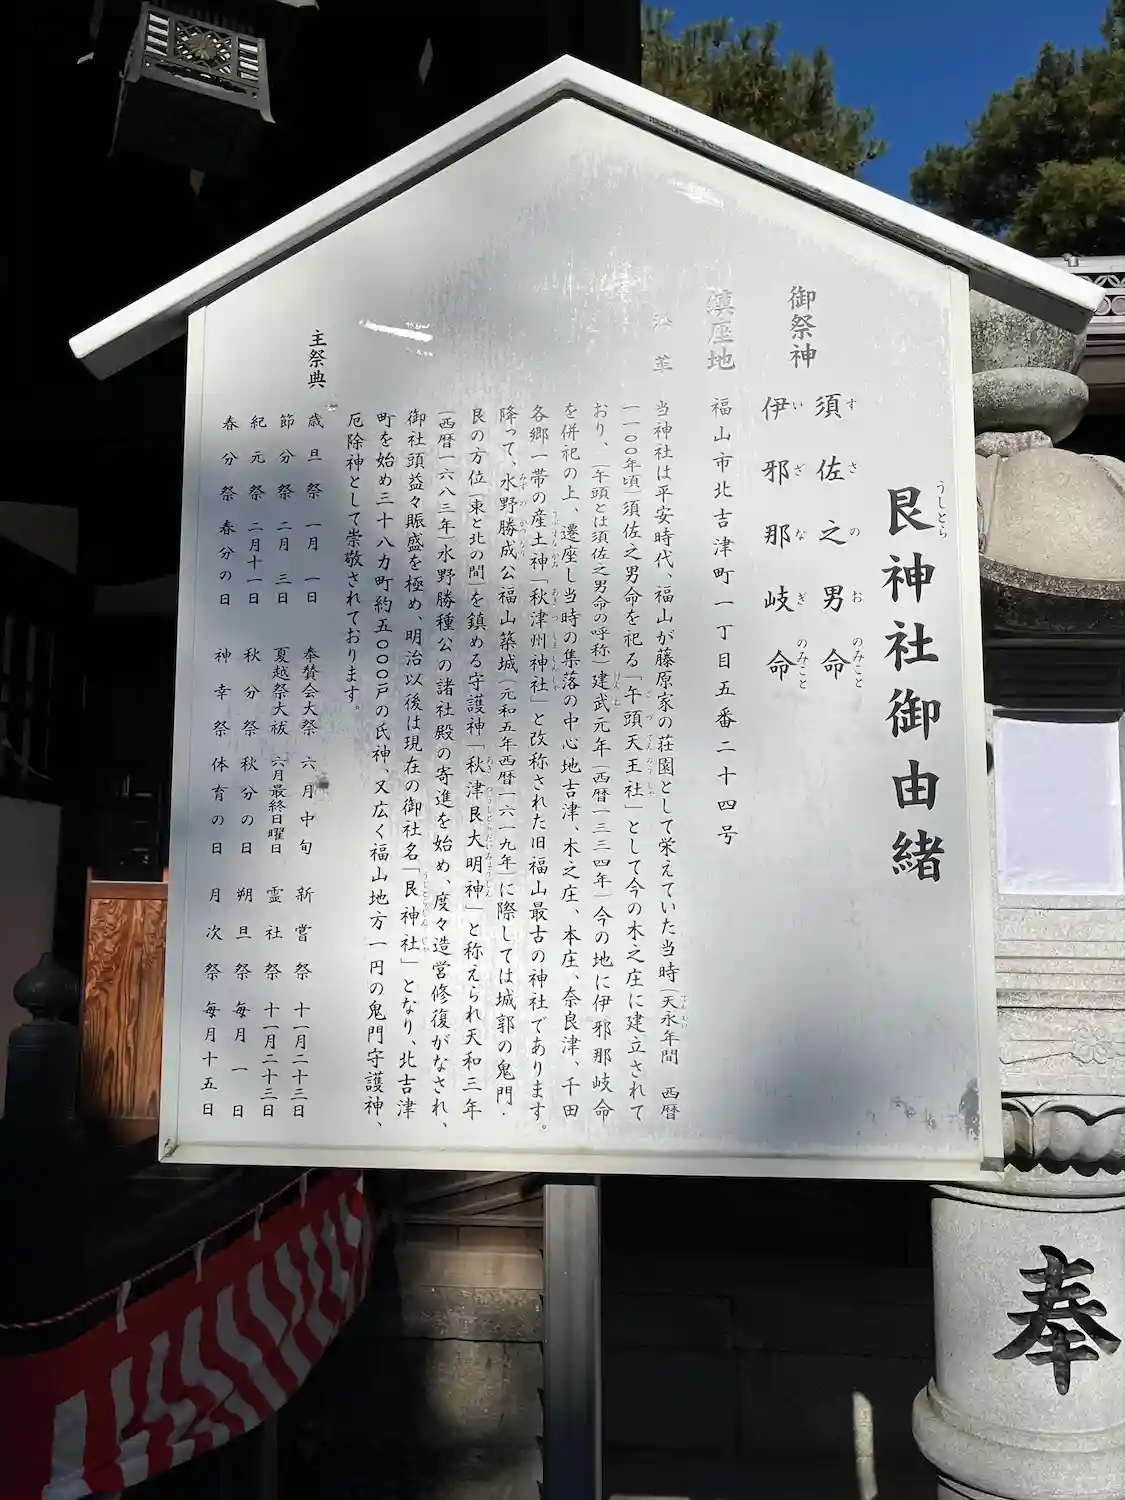 艮神社御由緒
うしとら
御祭神
須佐之男命
すさのおのみこと
伊邪那岐命
いざなぎのみこと
鎮座地
福山市北吉津町一丁目五番二十四号
沿革
当神社は平安時代、福山が藤原家の荘園として栄えていた当時(天永年間 西暦
一一〇〇年頃)須佐之男命を祀る「午頭天王社」として今の木之庄に建立されて
おり、(午頭とは須佐之男命の呼称)建武元年(西暦一三三四年)今の地に伊邪那岐命
を併祀の上、遷座し当時の集落の中心地吉津、木之庄、本庄、奈良津、千田
各郷一帯の産土神「秋津州神社」と改称された旧福山最古の神社であります。
降って、水野勝成公福山築城(元和五年西暦一六一九年)に際しては城郭の鬼門・
艮の方位(東と北の間)を鎮める守護神「秋津艮大明神」と称えられ天和三年
(西暦一六八三年)水野勝種公の諸社殿の寄進を始め、度々造営修復がなされ、
御社頭益々賑盛を極め、明治以後は現在の御社名「艮神社」となり、北吉津
町を始め三十八カ町約五〇〇〇戸の氏神、又広く福山地方一円の鬼門守護神、
厄除神として崇敬されております。
主祭典
歳旦祭 一月一日 奉賛会大祭 六月中旬 新嘗祭 十一月二十三日
節分祭 二月三日 夏越祭大祓 六月最終日曜日 霊社祭 十一月二十三日
紀元祭 二月十一日 秋分祭 秋分の日 朔旦祭 毎月一日
春分祭 春分の日 神幸祭 体育の日 月次祭 毎月十五日
奉